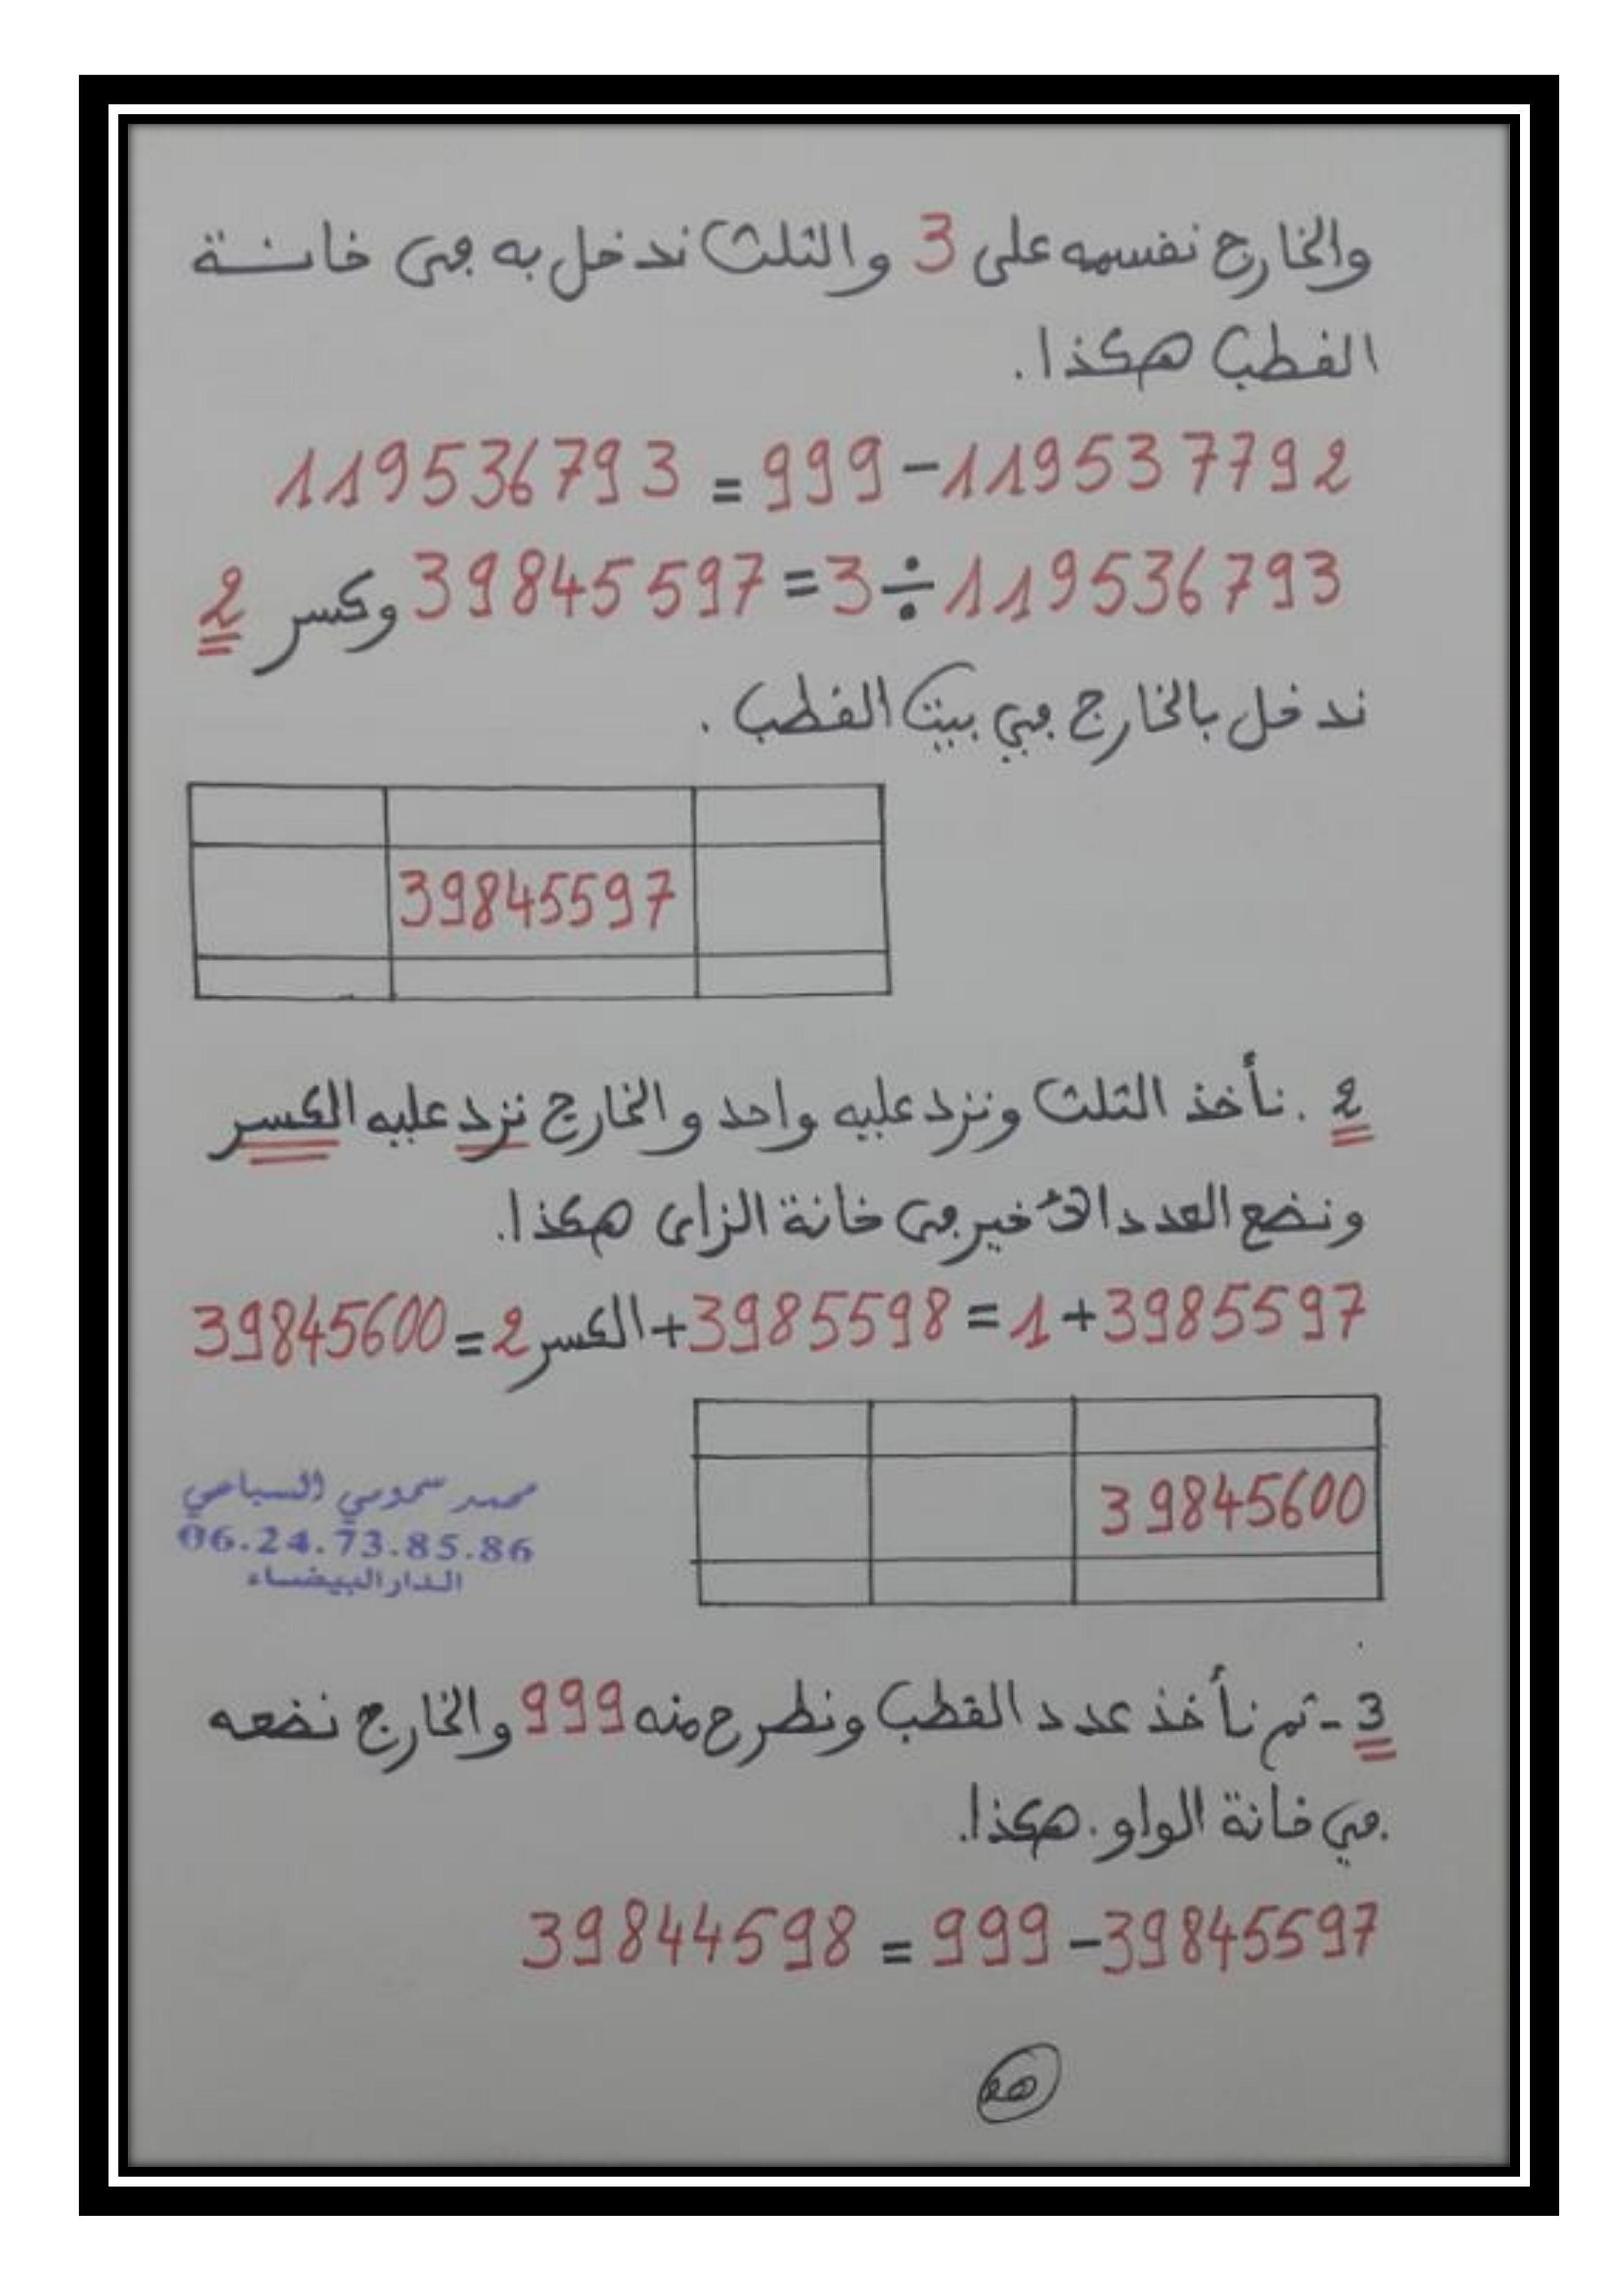 والخارج نفسمه على 3 والثلث ندخل به في خانة
القطب هكذا.
119536793 = 999 - 119537792
119536793 ÷ 3 = 39845597 وكسر 2
ندخل بالخارج في بيت القطب.
39845597
2. نأخذ الثلث ونزد عليه واحد والخارج نزد عليه الكسر
ونضع العدد الأخير في خانة الزاى هكذا.
3985597 + 1 = 3985598 + الكسر 2 = 39845600
39845600
محمد سموسي السباعي
06.24.73.85.86
الدار البيضاء
3 - تم نأخذ عدد القطب ونطرح منه 999 والخارج نضعه
في خانة الواو. هكذا.
39844598 = 999 - 39845597